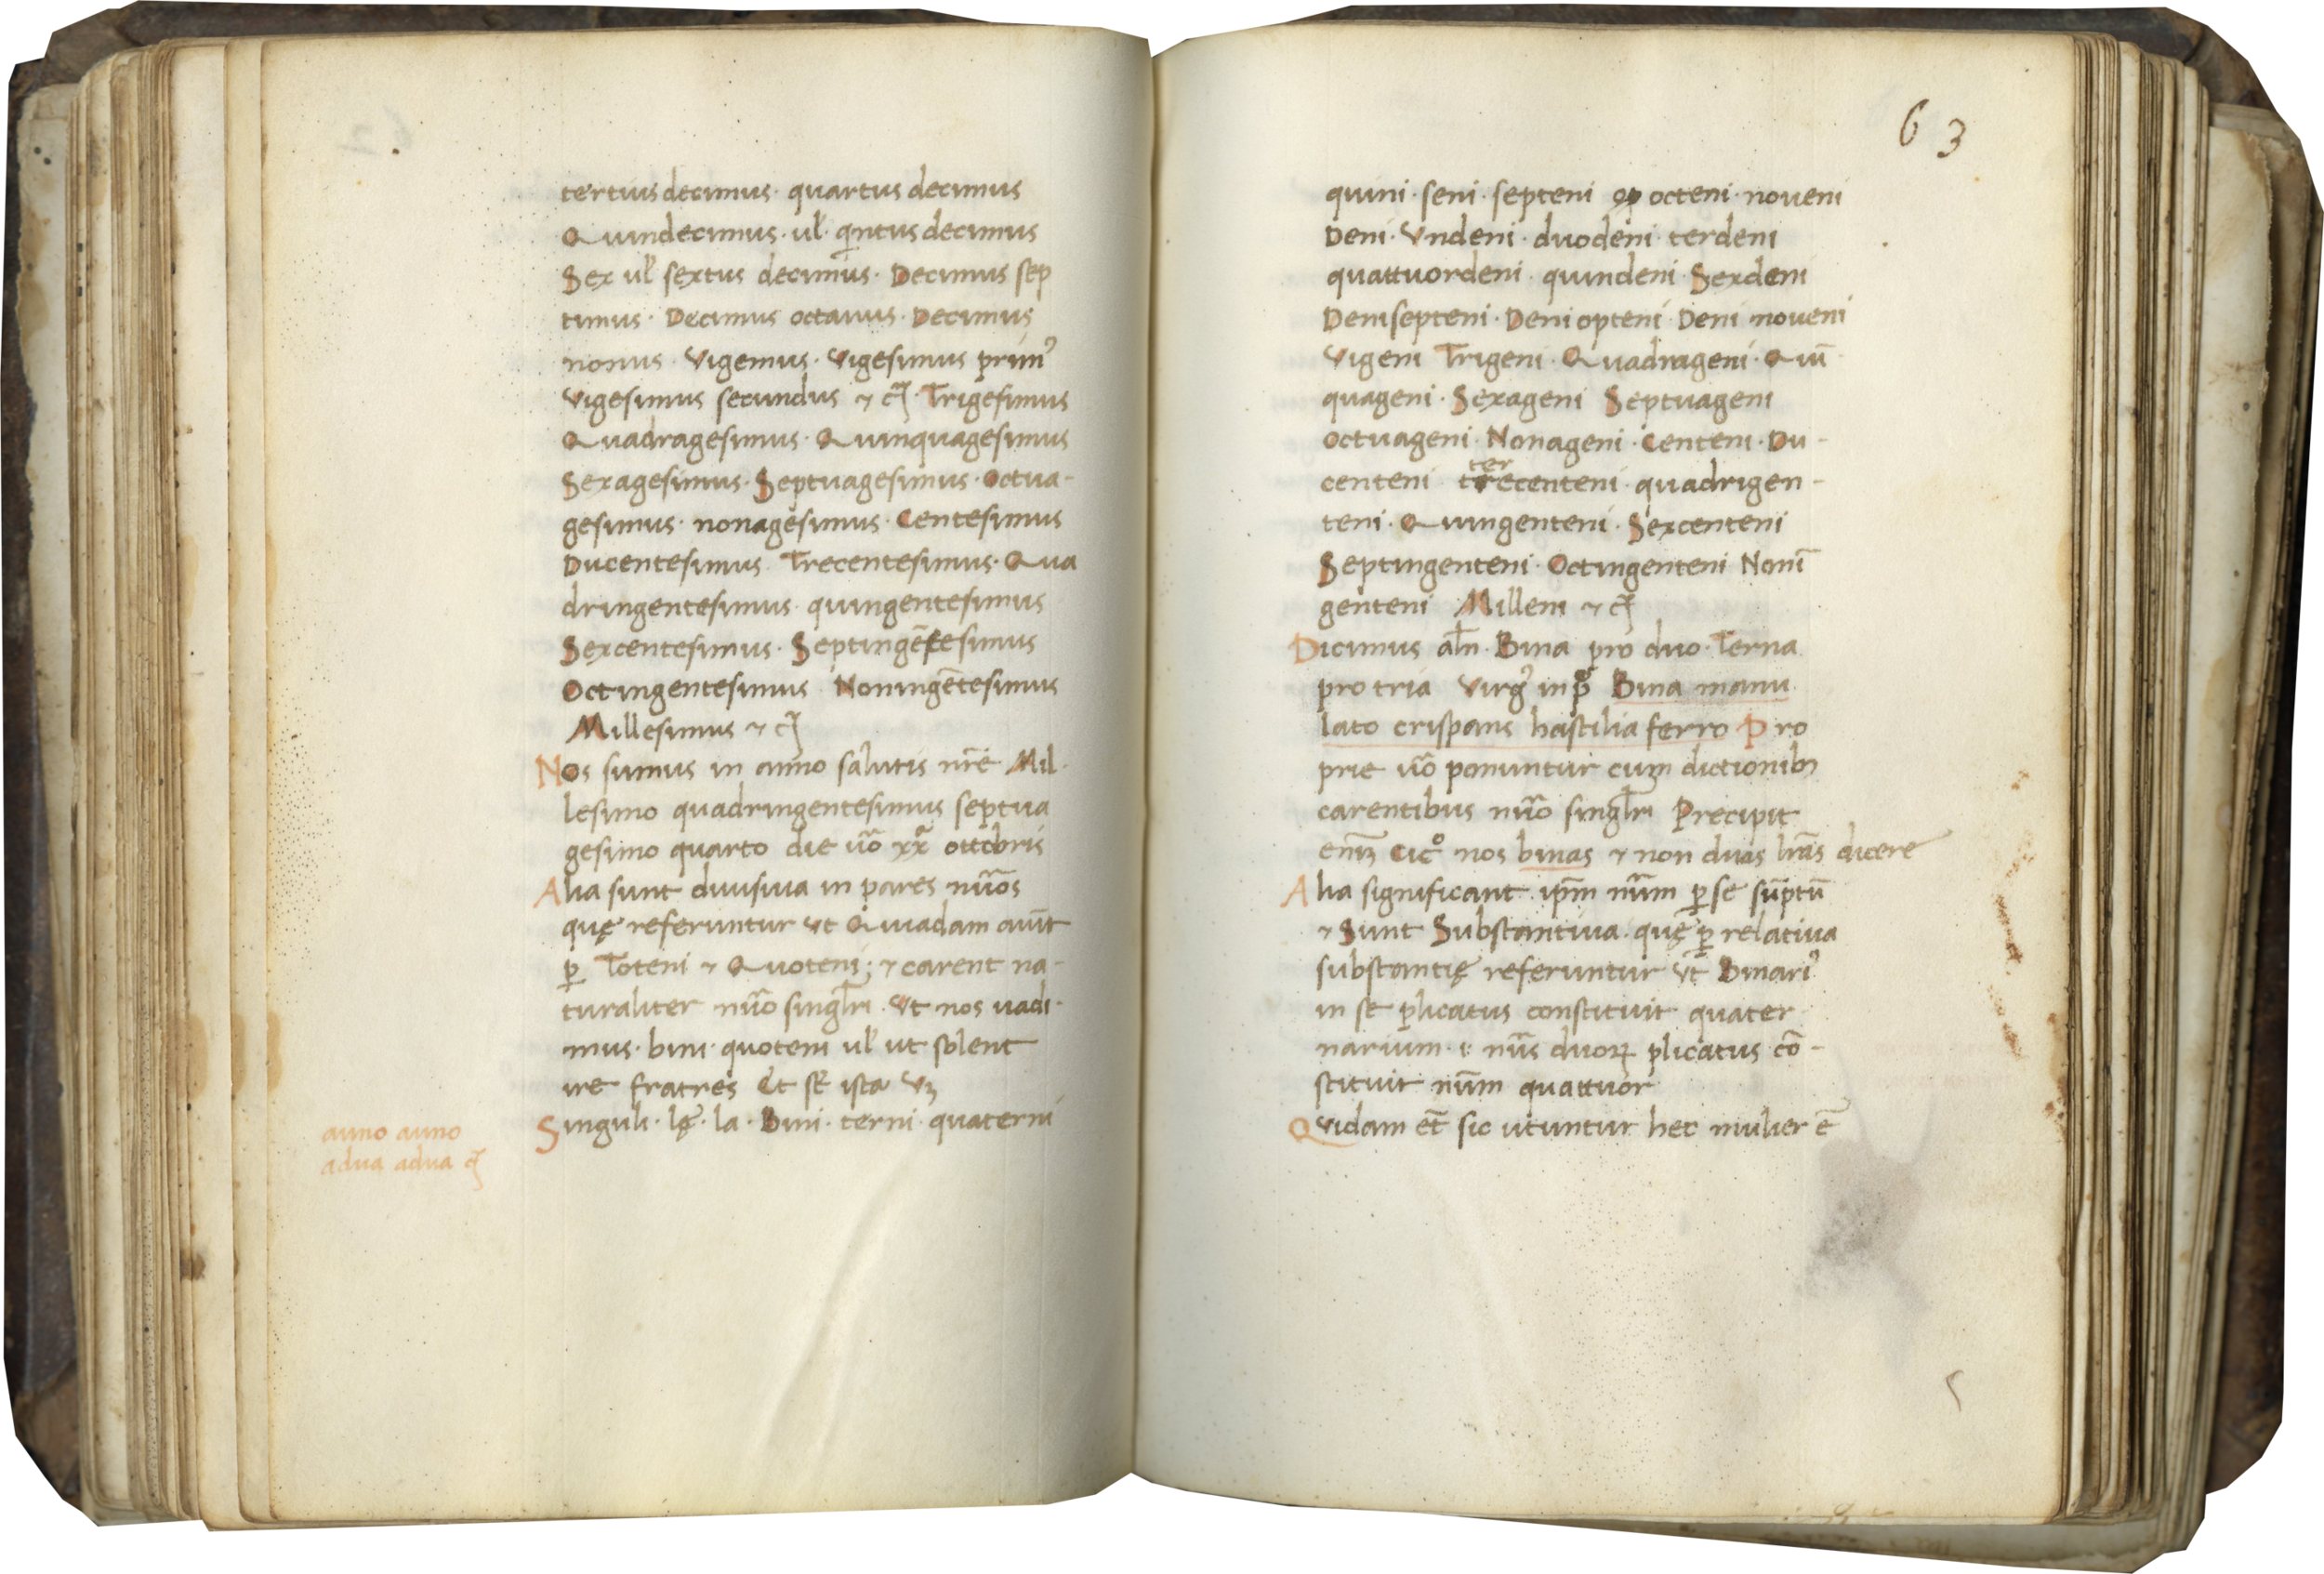 tertius decimus · quartus decimus
Quindecimus · ul' qintus decimus
Sex ul' sextus decimus · Decimus sep
timus · Decimus octauus · Decimus
nonus · Vigemus · Vigesimus prim9
Vigesimus secundus ⁊ c · Trigesimus
Quadragesimus · Quinquagesimus
Sexagesimus · Septuagesimus · Octua-
gesimus · nonagesimus · Centesimus
Ducentesimus Trecentesimus · Qua
dringentesimus · quingentesimus
Sexcentesimus · Septingētesimus
Octingentesimus Noningētesimus
Millesimus ⁊ c
Nos sumus in anno salutis nr̄e Mil-
lesimo quadringentesimus septua
gesimo quarto die ūo xxa ottobris
Alia sunt diuisiua in pares nūos
quę referuntur ut Quiadam aiūt
ꝑ Toteni ⁊ Quoteni; ⁊ carent na-
turaliter nūo singlri · Vt nos uadi-
mus · bini · quoteni ul' ut solent
ire fratres Et st̄ ista Vꝫ
Singuli · lę · la · Bini · terni · quaterni
anno anno
adua adua c
63
quini · seni · septeni op octeni · noueni
Deni · Vndeni · duodeni · terdeni
quattuordeni · quindeni · Sexdeni
Denisepteni · Deni opteni · Deni noueni
Vigeni Trigeni · Quadrageni · Quī
quageni · Sexageni Septuageni
octuageni · Nonageni · Centeni · Du-
centeni trecenteni · quadrigen-
ter
teni · Quingenteni · Sexcenteni
Septingenteni · Octingenteni Nonī
genteni Milleni ⁊ c
Dicimus aln̄ · Bina pro duo · Terna
pro tria Virg9 in pa Bina manu
lato crispans hastilia ferro Pro
prie ūo ponuntur cum dictionibꝫ
carentibus nūo singlri Precipit
enīꝫ Cico nos binas ⁊ non duas lrās dicere
Alia significant ip̄m nūm ꝑ se sūptū
⁊ Sunt Substantiua · quę ꝑ relatiua
substantię referuntur Vt Binari9
in se plicatus constituit quater
narium · i · nūs duoꝝ plicatus cō-
stituit nūm quattuor
Quidam et̄ sic utuntur hec mulier ē